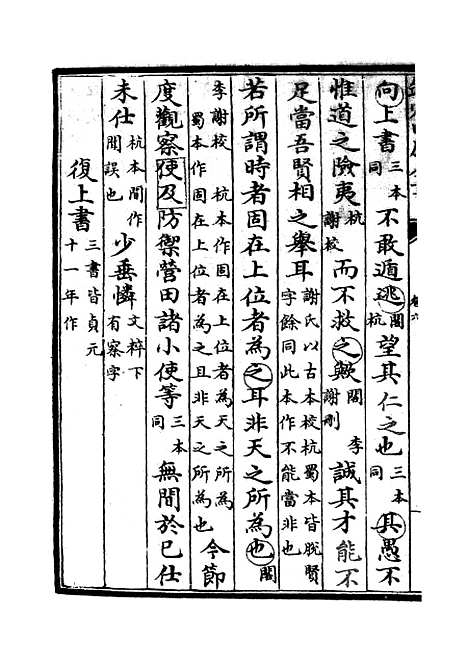 向上書三本同不敢遁逃閣杭望其仁之也三本同其愚不
惟道之險夷杭謝校而不救之歟閣李謝刪誠其才能不
足當吾賢相之舉耳謝氏以古本校杭蜀本皆脫賢字餘同此本作不能當非也
若所謂時者固在上位者為之耳非天之所為也閣
李謝校杭本作固在上位者為天之所為蜀本作固在上位者為之且非天之所為也今節
度觀察使及防禦營田諸小使等三本同無間於已仕
未仕杭本間作聞誤也少垂憐文粹下有察字
復上書三書皆貞元十一年作